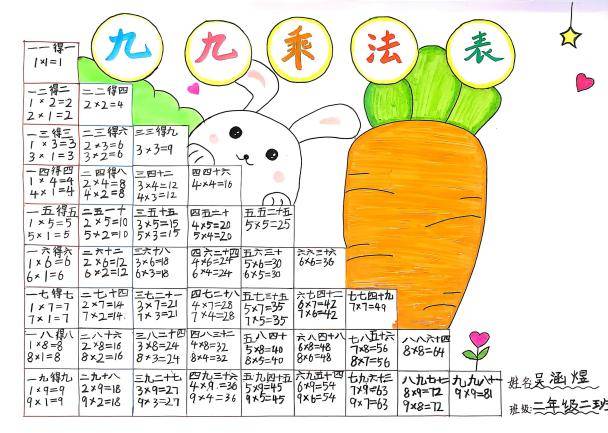 九九乘法表
一一得一
1×1=1
一二得二 二二得四
1×2=2 2×2=4
2×1=2
一三得三 二三得六 三三得九
1×3=3 2×3=6 3×3=9
3×1=3 3×2=6
一四得四 二四得八 三四十二 四四十六
1×4=4 2×4=8 3×4=12 4×4=16
4×1=4 4×2=8 4×3=12
一五得五 二五一十 三五十五 四五二十 五五二十五
1×5=5 2×5=10 3×5=15 4×5=20 5×5=25
5×1=5 5×2=10 5×3=15 5×4=20
一六得六 二六十二 三六十八 四六二十四 五六三十 六六三十六
1×6=6 2×6=12 3×6=18 4×6=24 5×6=30 6×6=36
6×1=6 6×2=12 6×3=18 6×4=24 6×5=30
一七得七 二七十四 三七二十一 四七二十八 五七三十五 六七四十二 七七四十九
1×7=7 2×7=14 3×7=21 4×7=28 5×7=35 6×7=42 7×7=49
7×1=7 7×2=14 7×3=21 7×4=28 7×5=35 7×6=42
一八得八 二八十六 三八二十四 四八三十二 五八四十 六八四十八 七八五十六 八八六十四
1×8=8 2×8=16 3×8=24 4×8=32 5×8=40 6×8=48 7×8=56 8×8=64
8×1=8 8×2=16 8×3=24 8×4=32 8×5=40 8×6=48 8×7=56
一九得九 二九十八 三九二十七 四九三十六 五九四十五 六九五十四 七九六十三 八九七十二 九九八十一
1×9=9 2×9=18 3×9=27 4×9=36 5×9=45 6×9=54 7×9=63 8×9=72 9×9=81
9×1=9 9×2=18 9×3=27 9×4=36 9×5=45 9×6=54 9×7=63 9×8=72
姓名吴涵煜
班级:二年级二班